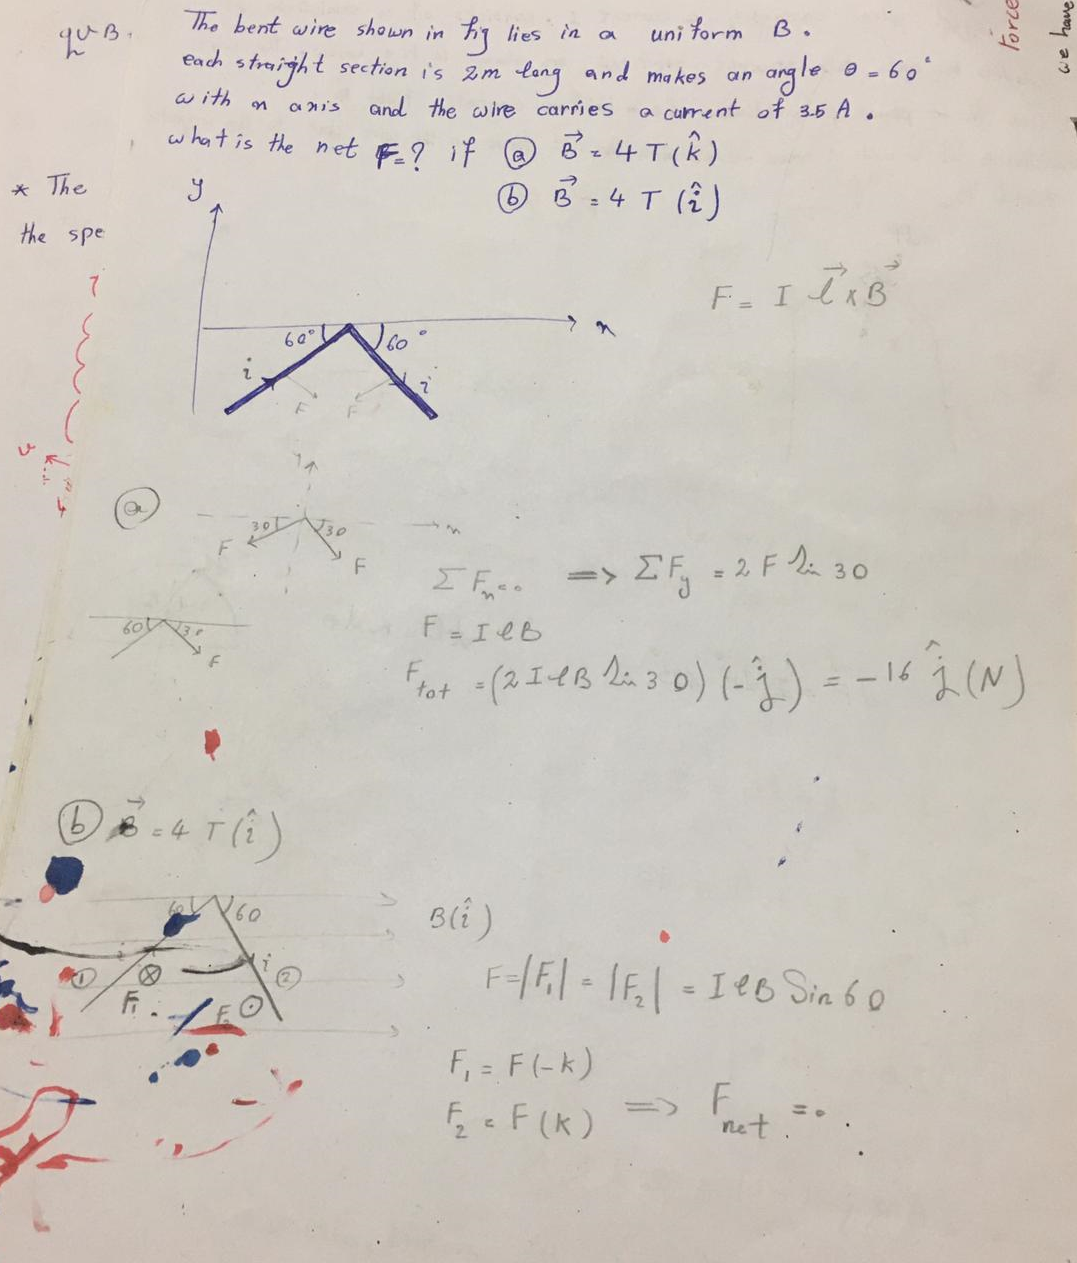 qvB.
The bent wire shown in fig lies in a uniform B.
each straight section is 2m long and makes an angle θ = 60°
with x axis and the wire carries a current of 3.5 A.
what is the net F=? if ⓐ B⃗ = 4 T (k̂)
ⓑ B⃗ = 4 T (î)
* The
the spe
Force
we have
y
F = I l⃗ x B⃗
60° 60° x
i i
F F
v
ⓐ
y
30 30 x
F F
Σ Fx=0 => Σ Fy = 2 F sin 30
60 30
F
F = I l B
Ftot = (2 I l B sin 30) (-ĵ) = -16 ĵ (N)
ⓑ B⃗ = 4 T (î)
60 60
B(î)
i i
① ②
F₁ ⊗ F₂ ⊙
F = |F₁| = |F₂| = I l B Sin 60
F₁ = F(-k)
F₂ = F(k) => Fnet = 0.